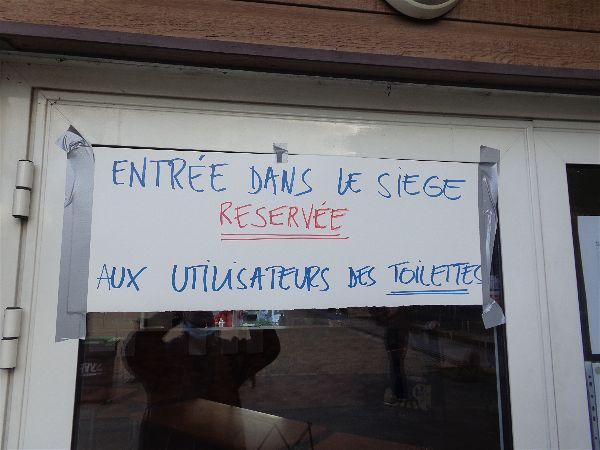 ENTRÉE DANS LE SIEGE
RESERVÉE
AUX UTILISATEURS DES TOILETTES